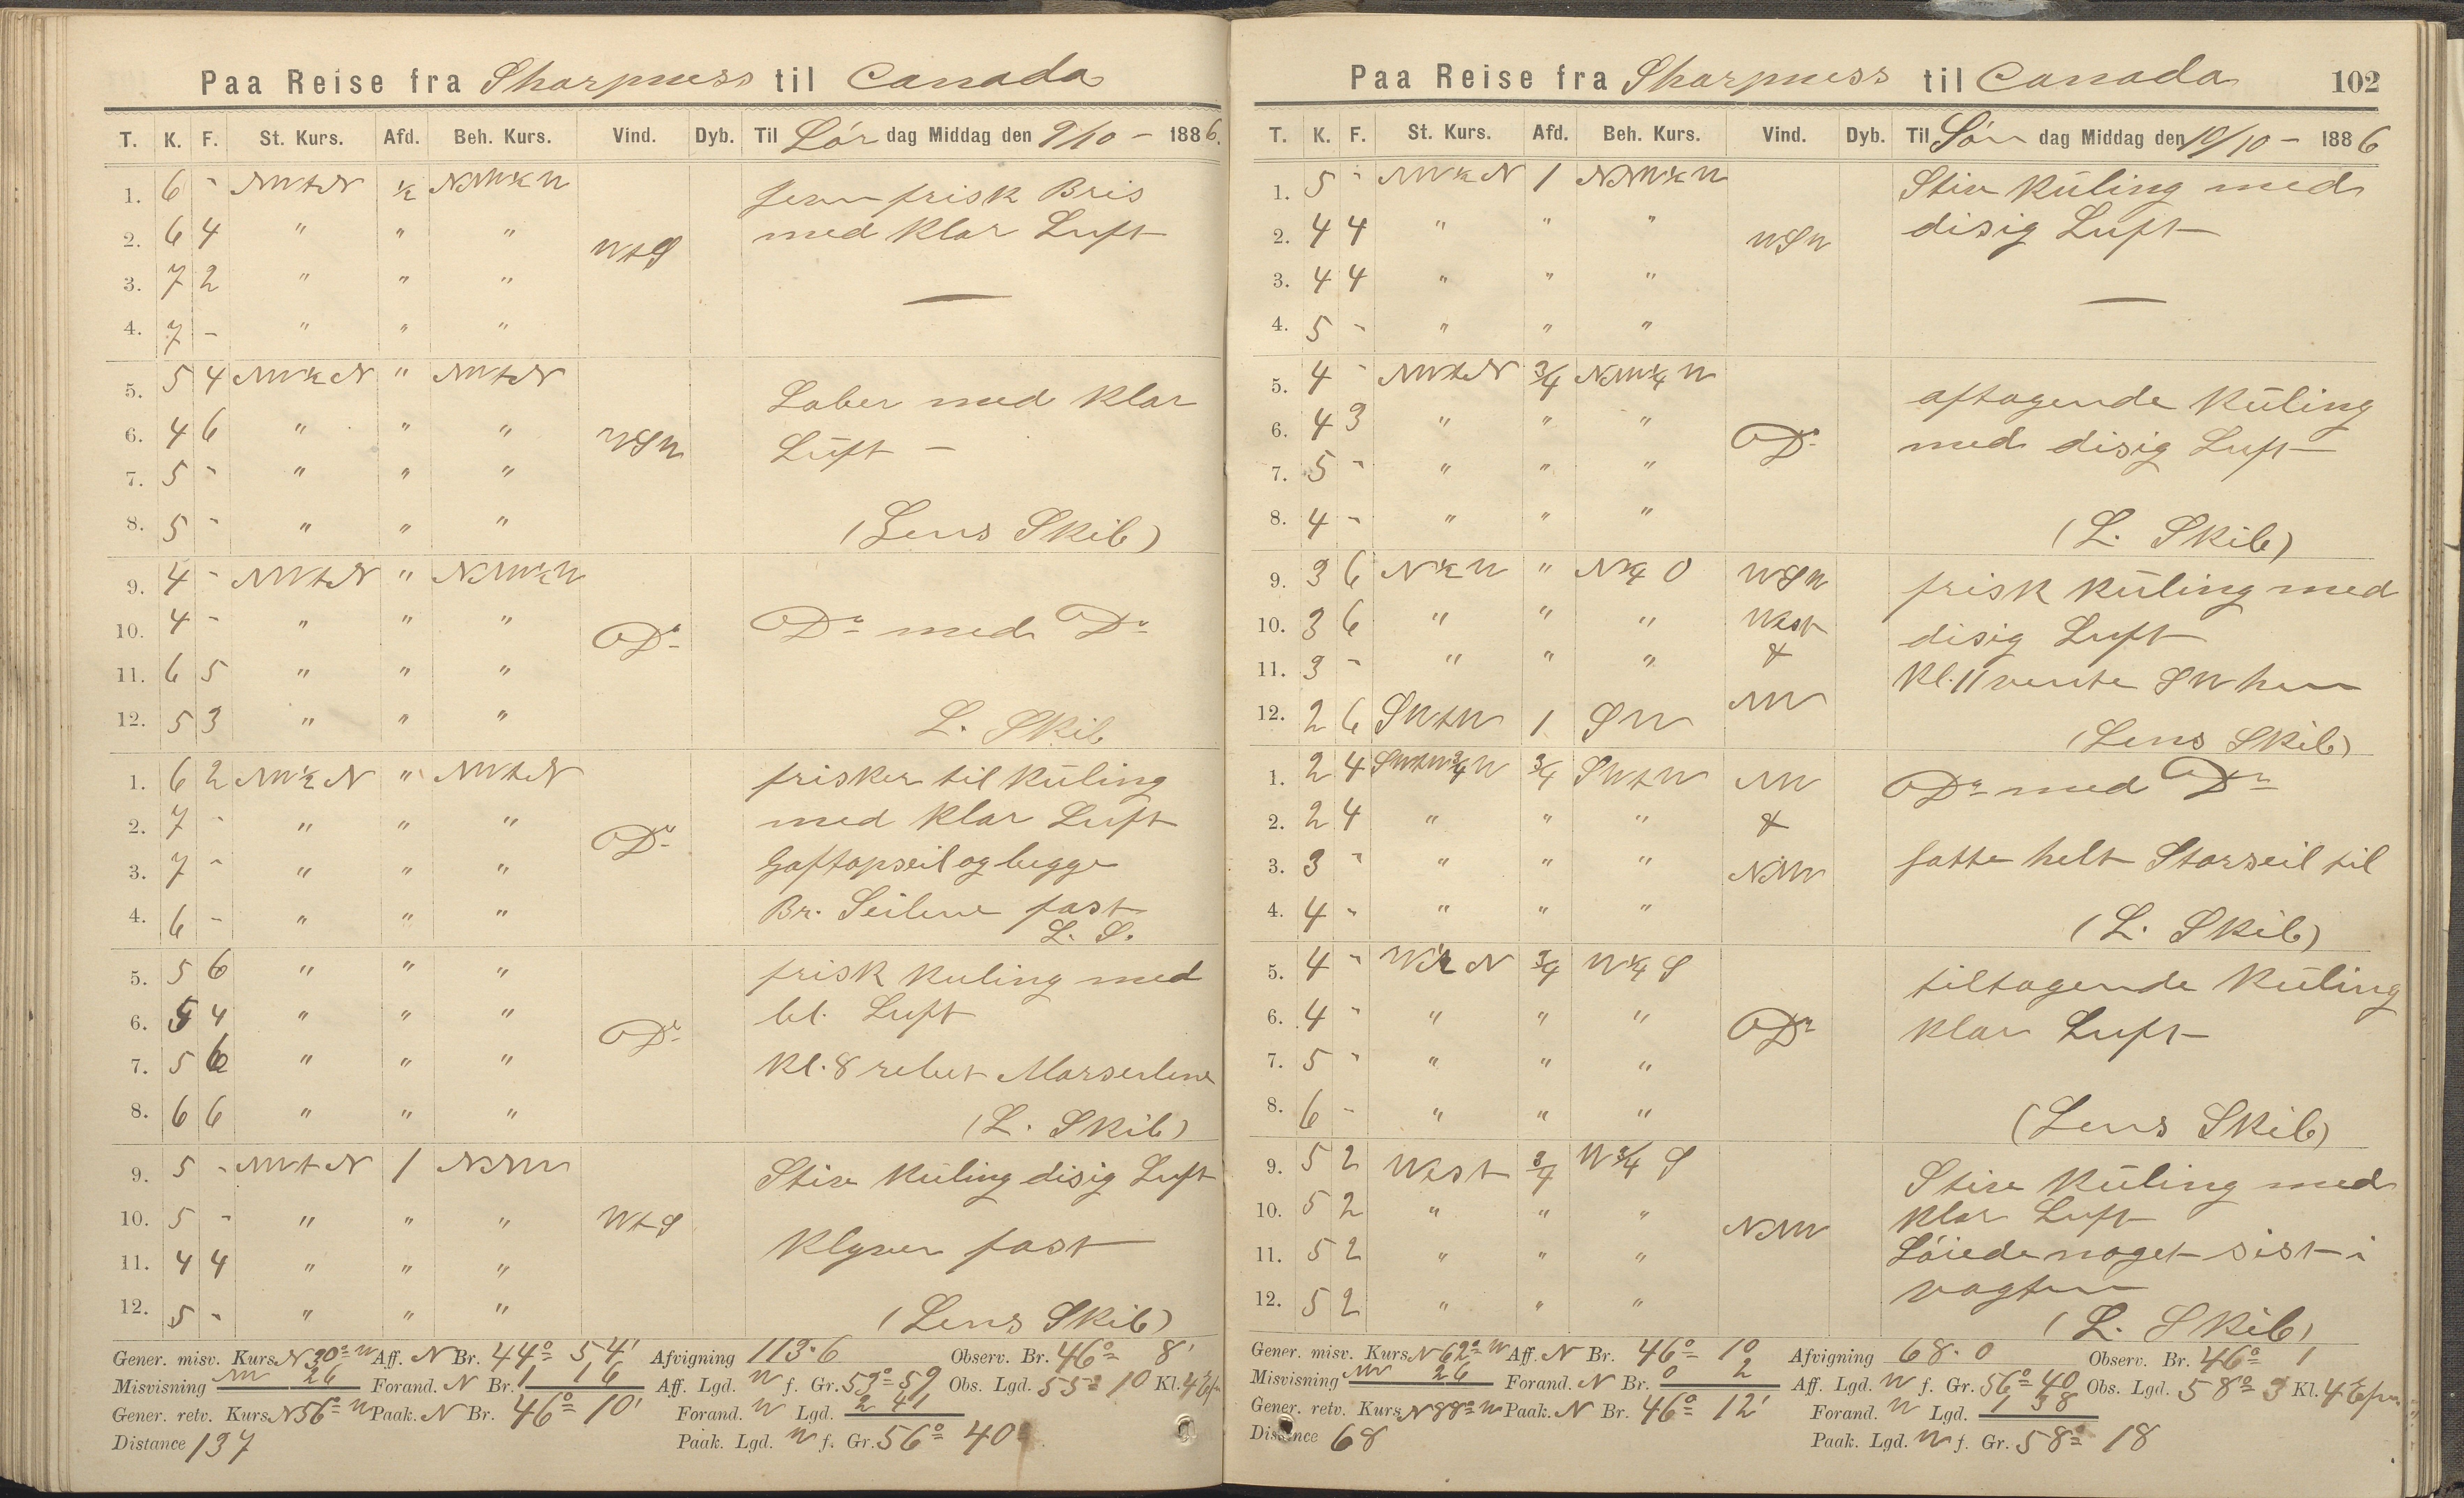 Paa Reise fra Sharpness til Canada
T. K. F. St. Kurs. Afd. Beh. Kurs. Vind. Dyb. Til Lör dag Middag den 9/10 - 1886.
1. 6 - NWtN ½ NNW½W Jevn frisk Bris
2. 6 4 " " " WtS med klar Luft
3. 7 2 " " "
4. 7 - " " "
5. 5 4 NW½N " NWtN Laber med klar
6. 4 6 " " " WSW Lüft -
7. 5 - " " "
8. 5 - " " " (Lens Skib)
9. 4 - NWtN " NNW½W
10. 4 - " " " Do Do med Do
11. 6 5 " " "
12. 5 3 " " " L. Skib
1. 6 2 NW½N " NWtN frisker til Küling
2. 7 - " " " Do med klar Luft
3. 7 - " " " Gaftopseil og begge
4. 6 - " " " Br. Seilene fast
L. S.
5. 5 6 " " " frisk kuling med
6. 5 4 " " " Do bl. Luft
7. 5 6 " " " Kl. 8 rebet Marseilene
8. 6 6 " " " (L. Skib)
9. 5 - NWtN 1 NNW Stiv Küling disig Luft
10. 5 - " " " WtS
11. 4 4 " " " Klyver fast
12. 5 - " " " (Lens Skib)
Gener. misv. Kurs N 30° W Aff. N Br. 44° 54' Afvigning 113.6 Observ. Br. 46° 8'
Misvisning NW 26 Forand. N Br. 1 16 Aff. Lgd. W f. Gr. 59° 59 Obs. Lgd. 55° 10 Kl. 4
Gener. retv. Kurs N 56° W Paak. N Br. 46° 10' Forand. W Lgd. 2 41
Distance 137 Paak. Lgd. W f. Gr. 56° 40
Paa Reise fra Sharpness til Canada 102
T. K. F. St. Kurs. Afd. Beh. Kurs. Vind. Dyb. Til Sön dag Middag den 10/10 - 1886
1. 5 - NW½N 1 NNW½W Stiv Küling med
2. 4 4 " " " WSW disig Luft
3. 4 4 " " "
4. 5 - " " "
5. 4 - NWtN ¾ NNW¼W aftagende Küling
6. 4 3 " " " Do med disig Luft
7. 5 - " " "
8. 4 - " " " (L. Skib)
9. 3 6 N½W " N¼O WSW frisk Küling med
10. 3 6 " " " West disig Luft
11. 3 - " " " & Kl. 11 vente SW hen
12. 2 6 SWtW 1 SW NW (Lens Skib)
1. 2 4 SWtW¾W ¾ SWtW NW Do med Do
2. 2 4 " " " &
3. 3 - " " " NNW satte helt Storseil til
4. 4 - " " " (L. Skib)
5. 4 - W½N ¾ W¼S tiltagende Küling
6. 4 - " " " Do klar Luft
7. 5 - " " "
8. 6 - " " " (Lens Skib)
9. 5 2 West ¾ W¾S Stiv Küling med
10. 5 2 " " " NNW klar Luft
11. 5 2 " " " Löiede noget sist i
12. 5 2 " " " vagten
(L. Skib)
Gener. misv. Kurs N 62° W Aff. N Br. 46° 10 Afvigning 68.0 Observ. Br. 46° 1
Misvisning NW 26 Forand. N Br. 0 2 Aff. Lgd. W f. Gr. 56° 40 Obs. Lgd. 58° 3 Kl. 4
Gener. retv. Kurs N 88° W Paak. N Br. 46° 12' Forand. W Lgd. 1 38
Distance 68 Paak. Lgd. W f. Gr. 58° 18